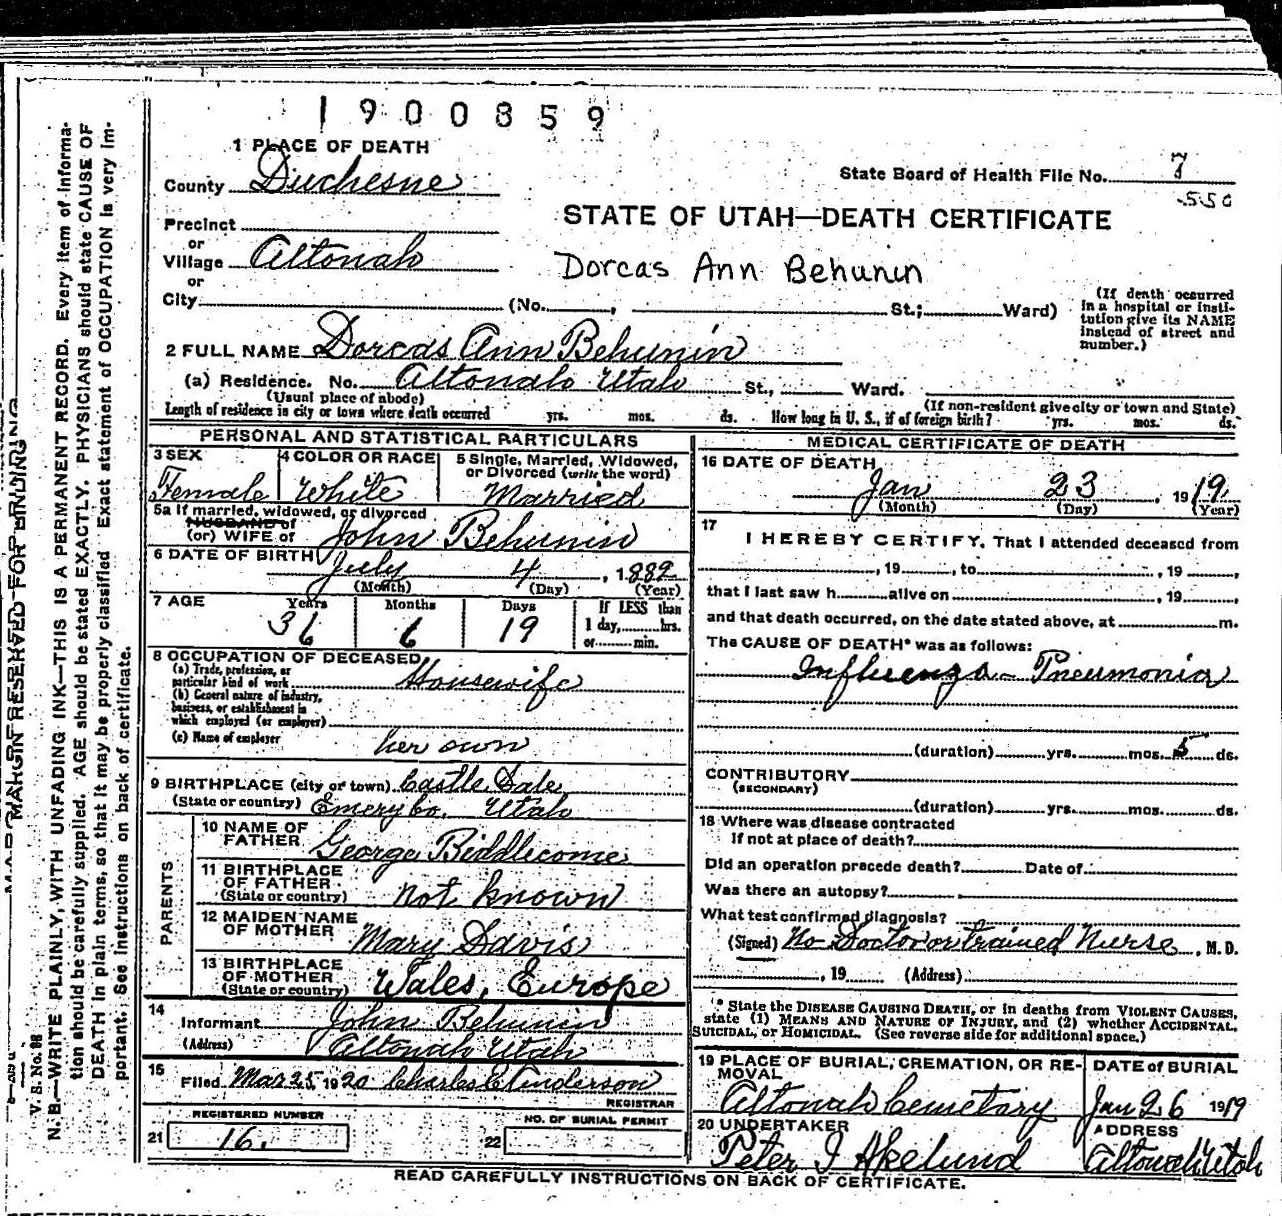 1900859
1 PLACE OF DEATH
County Duchesne
State Board of Health File No. 7
550
Precinct
or
Village Altonah
or
STATE OF UTAH—DEATH CERTIFICATE
Dorcas Ann Behunin
City (No. , St.; Ward)
(If death occurred
in a hospital or insti-
tution give its NAME
instead of street and
number.)
2 FULL NAME Dorcas Ann Behunin
(a) Residence. No. Altonah Utah St., Ward.
(Usual place of abode) (If non-resident give city or town and State)
Length of residence in city or town where death occurred yrs. mos. ds. How long in U. S., if of foreign birth? yrs. mos. ds.
PERSONAL AND STATISTICAL PARTICULARS
3 SEX
Female
4 COLOR OR RACE
White
5 Single, Married, Widowed,
or Divorced (write the word)
Married
5a If married, widowed, or divorced
HUSBAND of
(or) WIFE of John Behunin
6 DATE OF BIRTH July 4, 1882
(Month) (Day) (Year)
7 AGE Years Months Days If LESS than
36 6 19 1 day, hrs.
or min.
8 OCCUPATION OF DECEASED
(a) Trade, profession, or
particular kind of work Housewife
(b) General nature of industry,
business, or establishment in
which employed (or employer)
(c) Name of employer her own
9 BIRTHPLACE (city or town) Castle Dale
(State or country) Emery Co. Utah
PARENTS
10 NAME OF
FATHER George Biddlecome
11 BIRTHPLACE
OF FATHER
(State or country) not known
12 MAIDEN NAME
OF MOTHER Mary Davis
13 BIRTHPLACE
OF MOTHER
(State or country) Wales, Europe
14
Informant John Behunin
(Address) Altonah Utah
15
Filed Mar 25, 1920 Charles C Anderson
REGISTRAR
REGISTERED NUMBER
21 16.
NO. OF BURIAL PERMIT
22
MEDICAL CERTIFICATE OF DEATH
16 DATE OF DEATH
Jan 23, 1919
(Month) (Day) (Year)
17
I HEREBY CERTIFY, That I attended deceased from
, 19 , to , 19 ,
that I last saw h alive on , 19 ,
and that death occurred, on the date stated above, at m.
The CAUSE OF DEATH* was as follows:
Influenza - Pneumonia
(duration) yrs. mos. 5 ds.
CONTRIBUTORY
(SECONDARY)
(duration) yrs. mos. ds.
18 Where was disease contracted
If not at place of death?
Did an operation precede death? Date of
Was there an autopsy?
What test confirmed diagnosis?
(Signed) No Doctor or trained Nurse, M. D.
, 19 (Address)
* State the DISEASE CAUSING DEATH, or in deaths from VIOLENT CAUSES,
state (1) MEANS AND NATURE OF INJURY, and (2) whether ACCIDENTAL,
SUICIDAL, OR HOMICIDAL. (See reverse side for additional space.)
19 PLACE OF BURIAL, CREMATION, OR RE-
MOVAL
Altonah Cemetary
DATE of BURIAL
Jan 26 1919
20 UNDERTAKER
Peter I Akelund
ADDRESS
Altonah Utah
READ CAREFULLY INSTRUCTIONS ON BACK OF CERTIFICATE.
MARGIN RESERVED FOR BINDING
V. S. No.
N. B.—WRITE PLAINLY, WITH UNFADING INK—THIS IS A PERMANENT RECORD. Every item of informa-
tion should be carefully supplied. AGE should be stated EXACTLY. PHYSICIANS should state CAUSE OF
DEATH in plain terms, so that it may be properly classified. Exact statement of OCCUPATION is very im-
portant. See instructions on back of certificate.